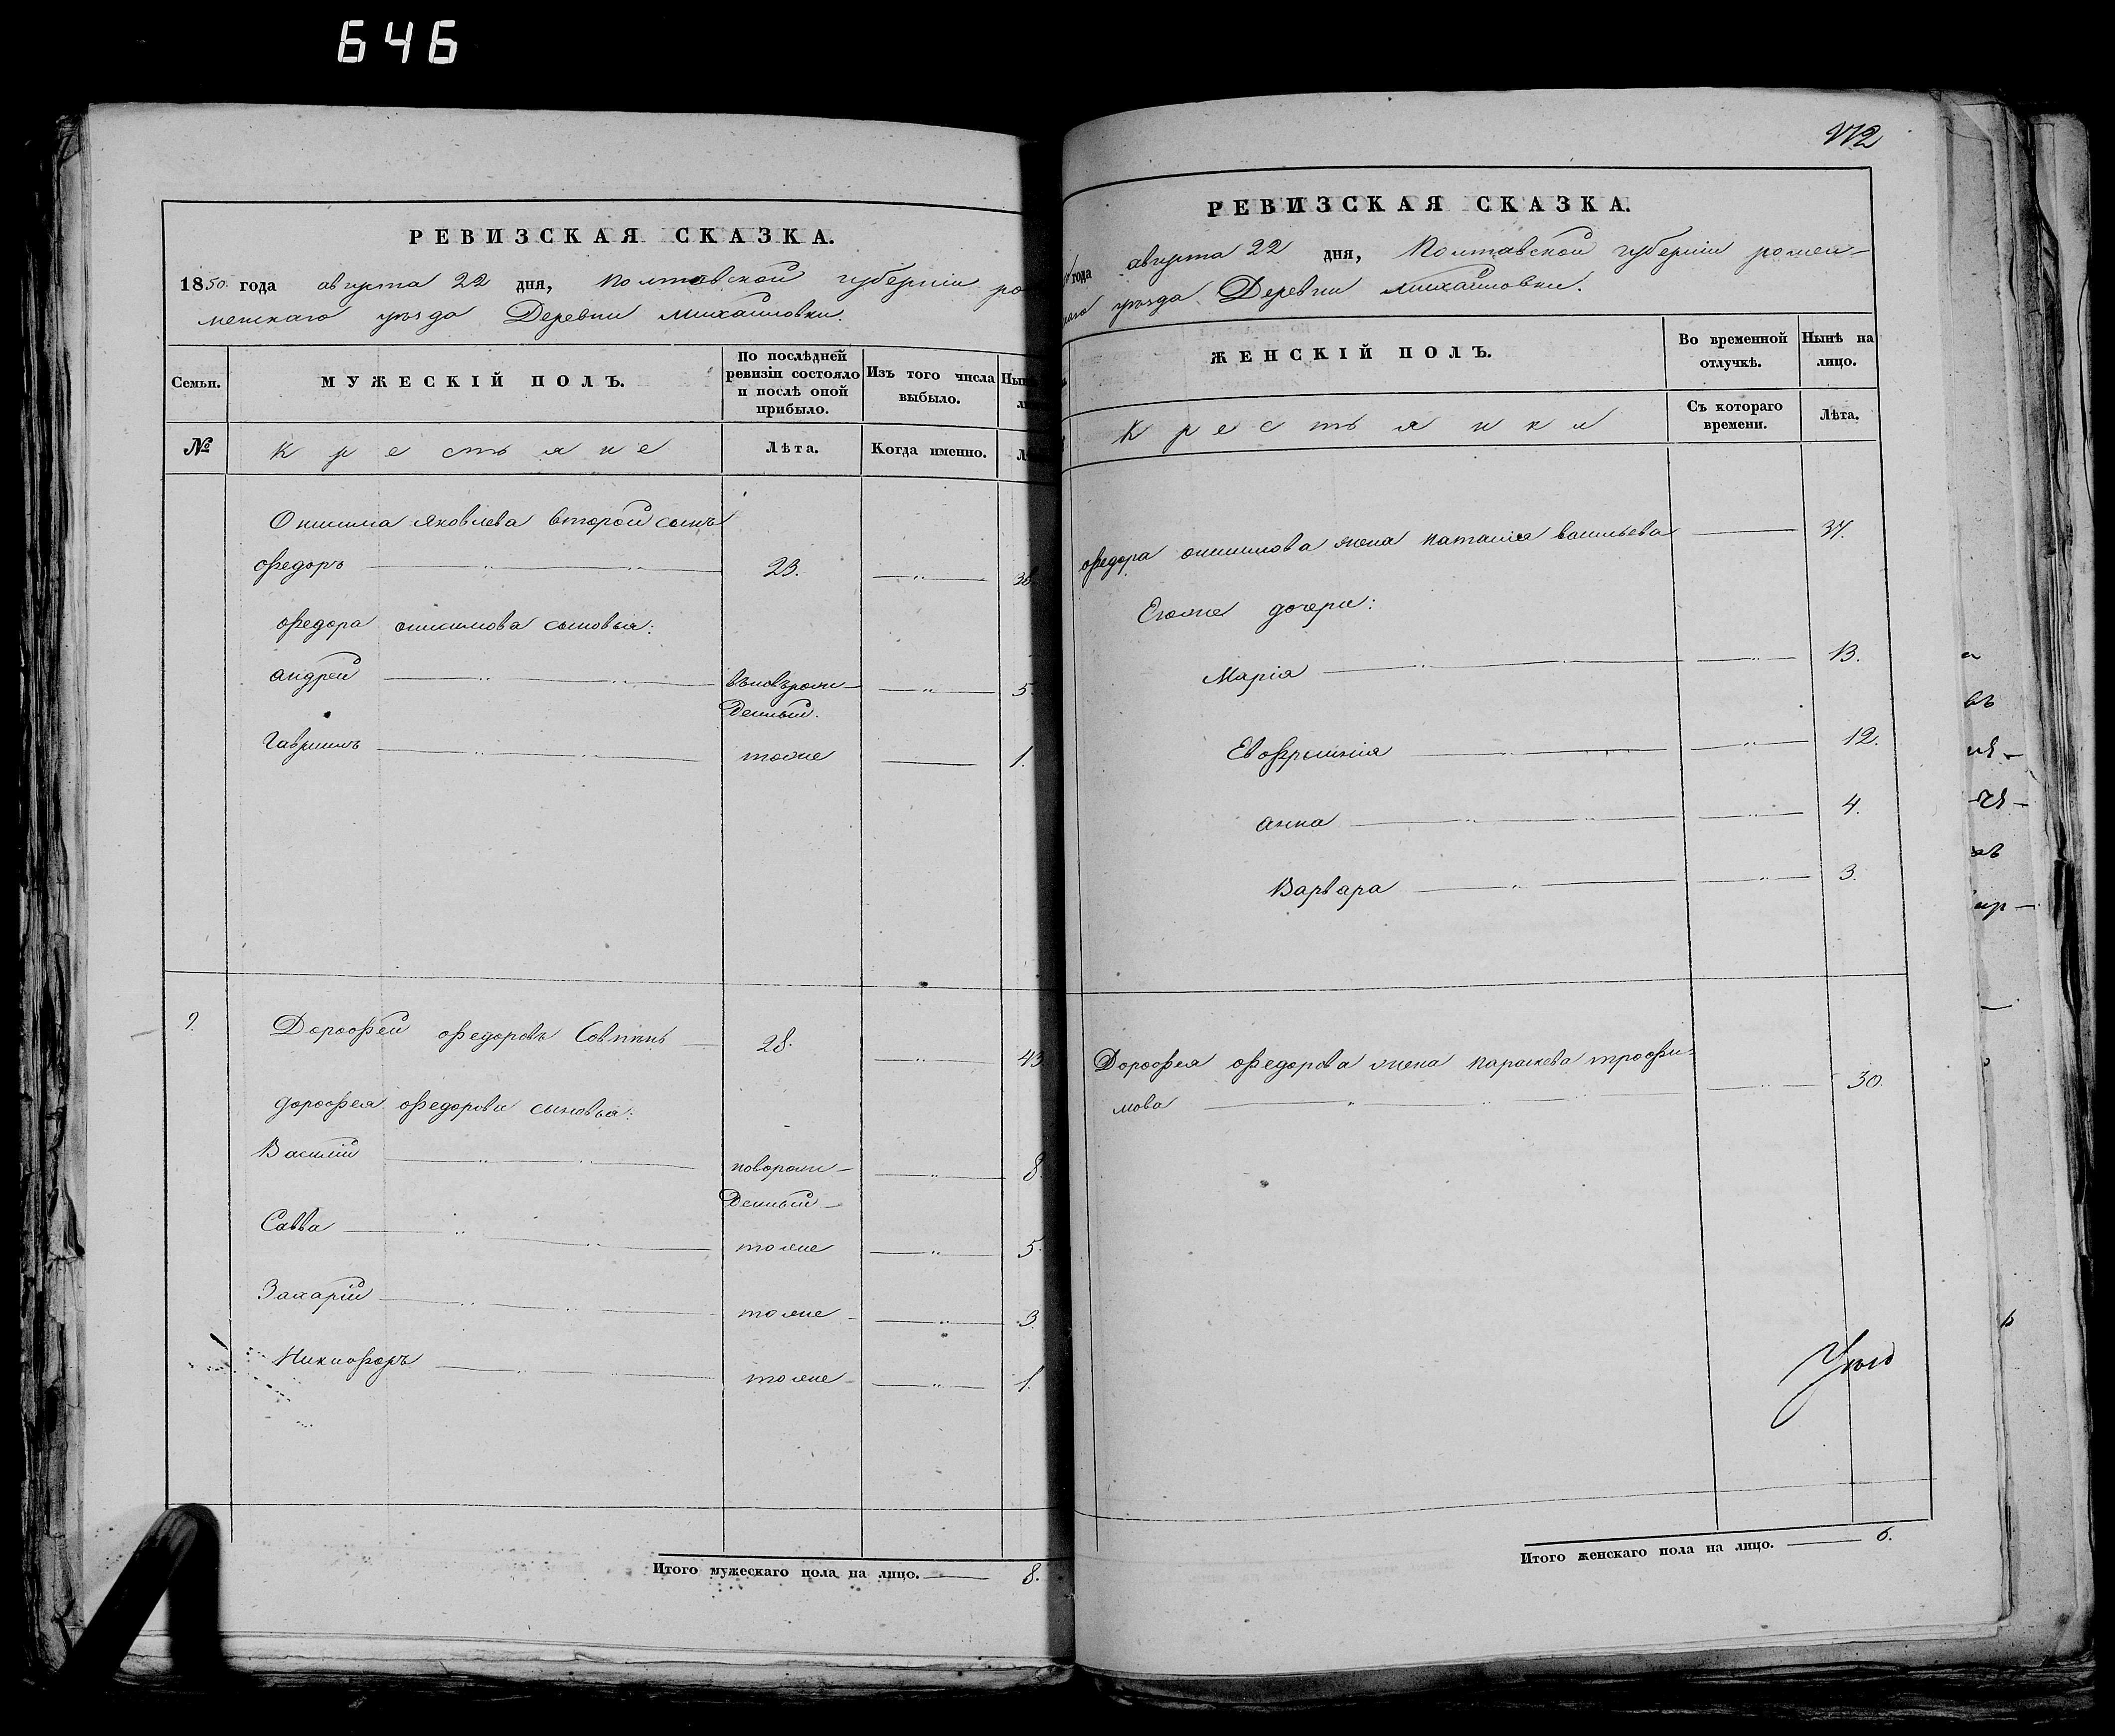 646
РЕВИЗСКАЯ СКАЗКА.
1850. года августа 22 дня, Полтавской губерніи ро
менскаго уѣзда Деревни Михайловки.
Семьи.
МУЖЕСКІЙ ПОЛЪ.
По послѣдней ревизіи состояло и послѣ оной прибыло.
Изъ того числа выбыло.
№
Крестьяне
Лѣта.
Когда именно.
Онисима Яковлева второй сынъ
Федоръ 23. 38.
Федора Онисимова сыновья:
Андрей 5
денный.
Гавриилъ тоже 1.
9. Дорофей Федоровъ 28. 43
Дорофея Федорова сыновья:
Василій новорож-
денный 8.
Савва тоже 5.
Захарій тоже 3.
Никифоръ тоже 1.
Итого мужескаго пола на лицо. 8.
172
РЕВИЗСКАЯ СКАЗКА.
года августа 22 дня, Полтавской губерніи ромен-
скаго уѣзда Деревни Михайловки.
ЖЕНСКІЙ ПОЛЪ.
Во временной отлучкѣ.
Нынѣ на лицо.
Крестьянки
Съ котораго времени.
Лѣта.
Федора Онисимова жена Наталія Васильева 37.
Егоже дочери:
Марія 13.
Евфросинія 12.
Анна 4.
Варвара 3.
Дорофея Федорова жена Параскева Трофи-
мова 30.
Итого женскаго пола на лицо. 6.